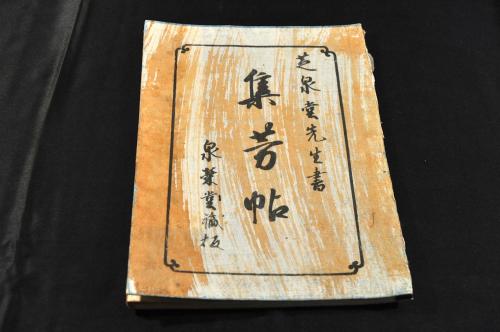 芝泉堂先生書
集芳帖
泉葉堂蔵板